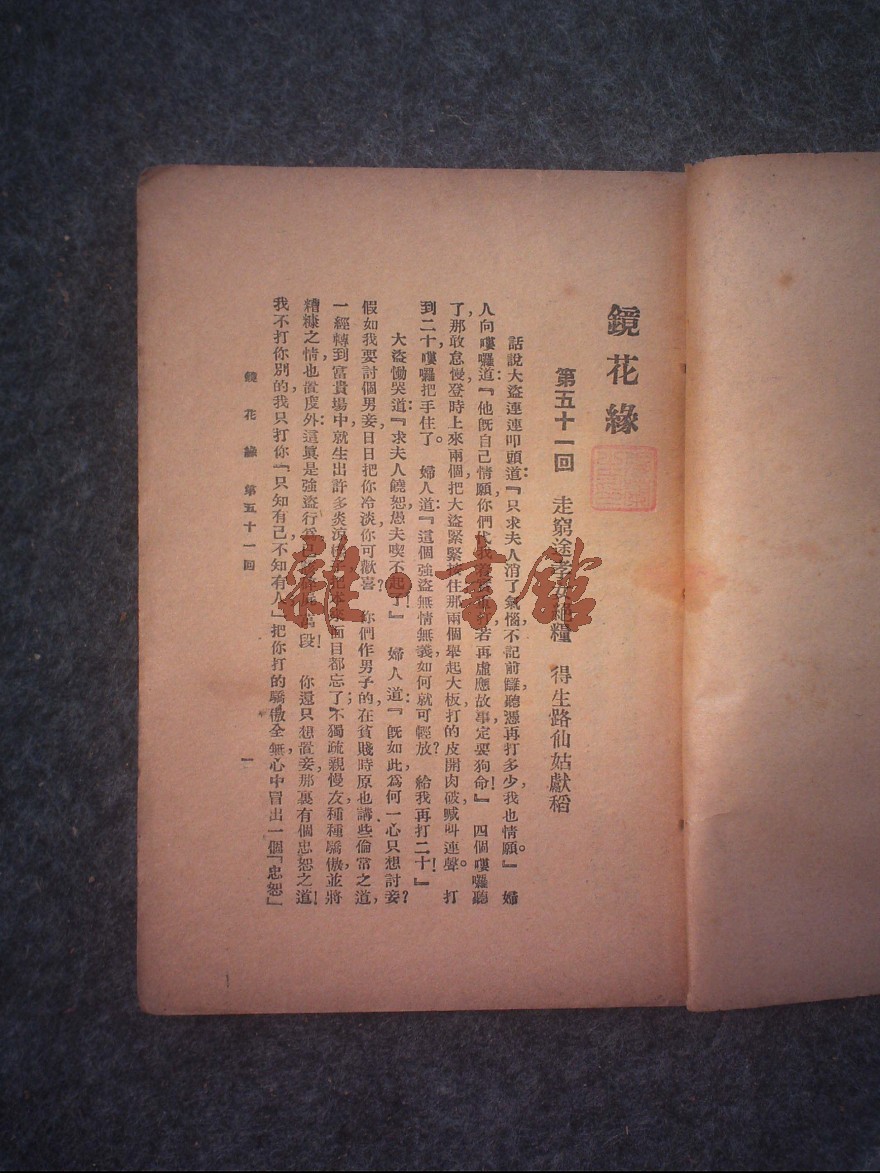 鏡花緣
第五十一回　走窮途孝女絕糧　得生路仙姑獻稻
話說大盜連連叩頭道：『只求夫人消了氣惱，不記前讎，聽憑再打多少，我也情願。』婦
人向嘍囉道：『他既自己情願，你們代我若再虛應故事，定要狗命！』四個嘍囉聽
了，那敢怠慢，登時上來兩個，把大盜緊緊按住；那兩個舉起大板，打的皮開肉破，喊叫連聲。打
到二十，嘍囉把手住了。婦人道：『這個強盜無情無義，如何就可輕放？給我再打二十！』
大盜慟哭道：『求夫人饒恕，愚夫喫不起了！』婦人道：『既如此，爲何一心只想討妾？
假如我要討個男妾，日日把你冷淡，你可歡喜？你們作男子的，在貧賤時原也講些倫常之道，
一經轉到富貴場中，就生出許多炎涼面目都忘了；不獨疏親慢友，種種驕傲，並將
糟糠之情也置度外：這眞是強盜行段！你還只想置妾，那裏有個忠恕之道！
我不打你別的，我只打你「只知有己，不知有人」把你打的驕傲全無，心中冒出一個「忠恕」
鏡花緣　第五十一回
一
雜·書館